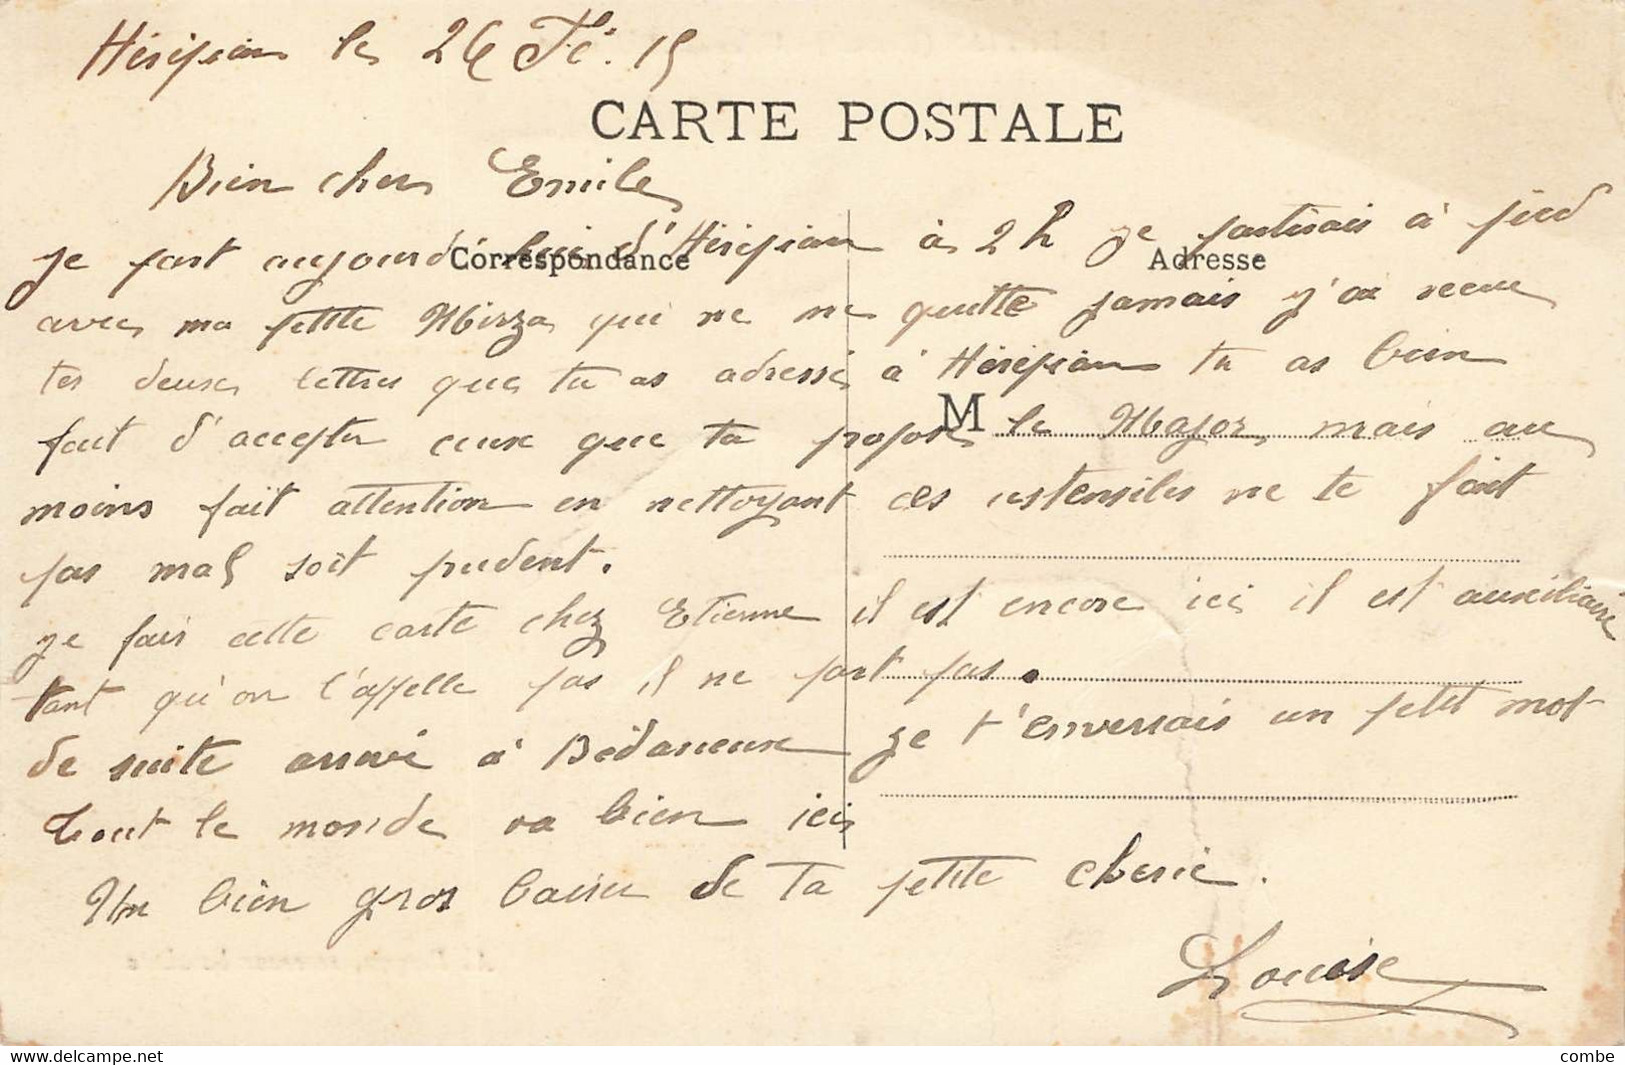 Hérépian le 26 Fé. 15
CARTE POSTALE
Bien cher Emile
je part aujourd'hui d'Hérépian à 2 h je partirais à pied
Correspondance
Adresse
avec ma petite Mirza qui ne me quitte jamais j'ai recue
tes deux lettres que tu as adressé à Hérépian tu as bien
fait d'accepter ceux que ta propose le Major, mais au
M
moins fait attention en nettoyant ces ustensiles ne te fait
pas mal soit prudent.
je fais cette carte chez Etienne il est encore ici il est auxiliaire
tant qu'on l'appelle pas il ne part pas.
de suite arrivé à Bédarieux je t'enverrais un petit mot
Tout le monde va bien ici
Un bien gros baiser de ta petite cherie.
Louise
delcampe.net
combe